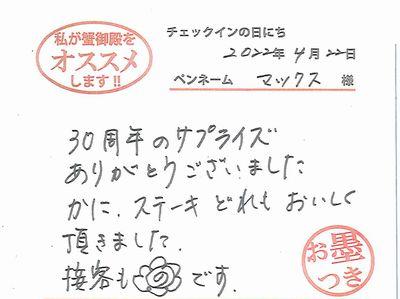 私が蟹御殿を
オススメ
します!!
チェックインの日にち
2022年4月22日
ペンネーム マックス 様
30周年のサプライズ
ありがとうございました
かに、ステーキ どれも おいしく
頂きました.
接客も です.
お墨
つき